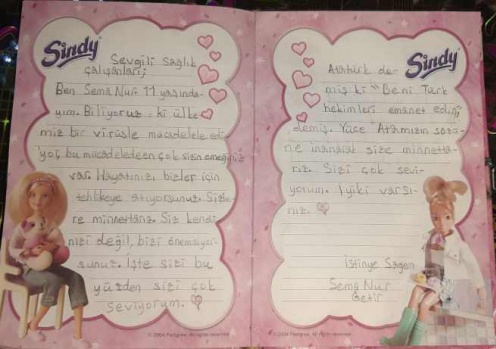 Sindy
Sevgili Sağlık
çalışanları;
Ben Sema Nur 11 yaşında-
yım. Biliyoruz ki ülke-
miz bir virüsle mücadele edi-
yor, bu mücadeledeen çok sizin emeğiniz
var. Hayatınızı bizler için
tehlikeye atıyorsunuz. Sizle-
re minnettarız. Siz kendi-
nizi değil, bizi önemsiyor-
sunuz. İşte sizi bu
yüzden sizi çok
seviyorum.
© 2004 Pedigree. All rights reserved.
Sindy
Atatürk de-
miş ki "Beni Türk
hekimleri emanet ediniz"
demiş. Yüce Atamızın sözü-
ne inanarak size minnetta-
rız. Sizi çok sevi-
yorum. İyiki varsı-
nız.
İstinye Sagen
Sema Nur
© 2004 Pedigree. All rights reserved.